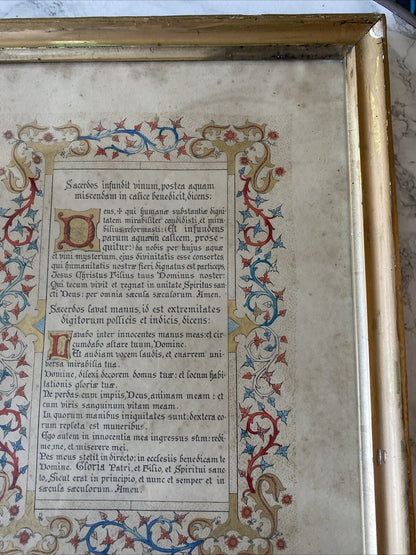 Sacerdos infundit vinum, postea aquam
miscendam in calice benedicit, dicens:
Deus, ✝ qui humanæ substantiæ digni
tatem mirabiliter condidisti, et mira
bilius reformasti: Et infundens
parum aquæ in calicem, prose-
quitur: da nobis per hujus aquæ
et vini mysterium, ejus divinitatis esse consortes,
qui humanitatis nostræ fieri dignatus est particeps,
Jesus Christus Filius tuus Dominus noster:
Qui tecum vivit et regnat in unitate Spiritus san
cti Deus: per omnia sæcula sæculorum. Amen.
Sacerdos lavat manus, id est extremitates
digitorum pollicis et indicis, dicens:
Lavabo inter innocentes manus meas: et cir
cumdabo altare tuum, Domine.
Et audiam vocem laudis, et enarrem uni-
versa mirabilia tua.
Domine, dilexi decorem domus tuæ: et locum habi
tationis gloriæ tuæ.
Ne perdas cum impiis, Deus, animam meam: et
cum viris sanguinum vitam meam.
In quorum manibus iniquitates sunt: dextera eo
rum repleta est muneribus.
Ego autem in innocentia mea ingressus sum: redi
me me, et miserere mei.
Pes meus stetit in directo: in ecclesiis benedicam te
Domine. Gloria Patri, et Filio, et Spiritui sanc
to, Sicut erat in principio, et nunc et semper et in
sæcula sæculorum. Amen.